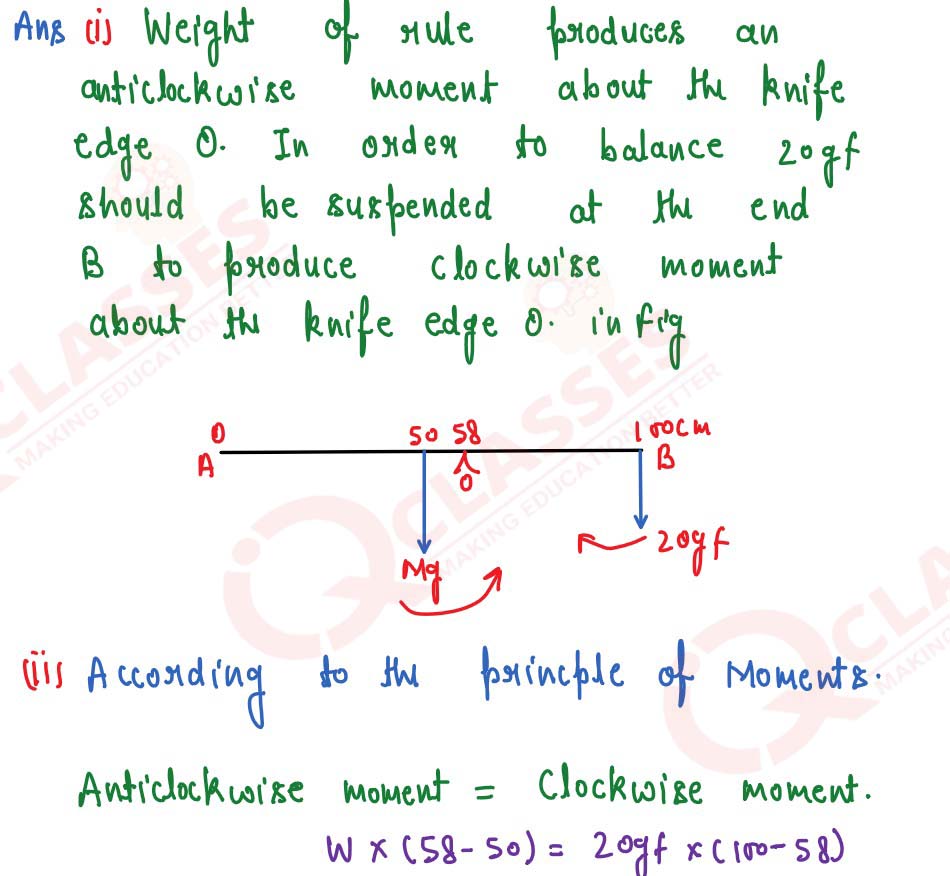 Ans (i) Weight of rule produces an
anticlockwise moment about the knife
edge O. In order to balance 20gf
should be suspended at the end
B to produce clockwise moment
about the knife edge O. in fig
0 50 58 100cm
A O B
20gf
Mg
(ii) According to the princple of Moments.
Anticlockwise moment = Clockwise moment.
W × (58-50) = 20gf × (100-58)
CLASSES
MAKING EDUCATION BETTER
IQ CLASSES
MAKING EDUCATION BETTER
IQ CLA
MAKING